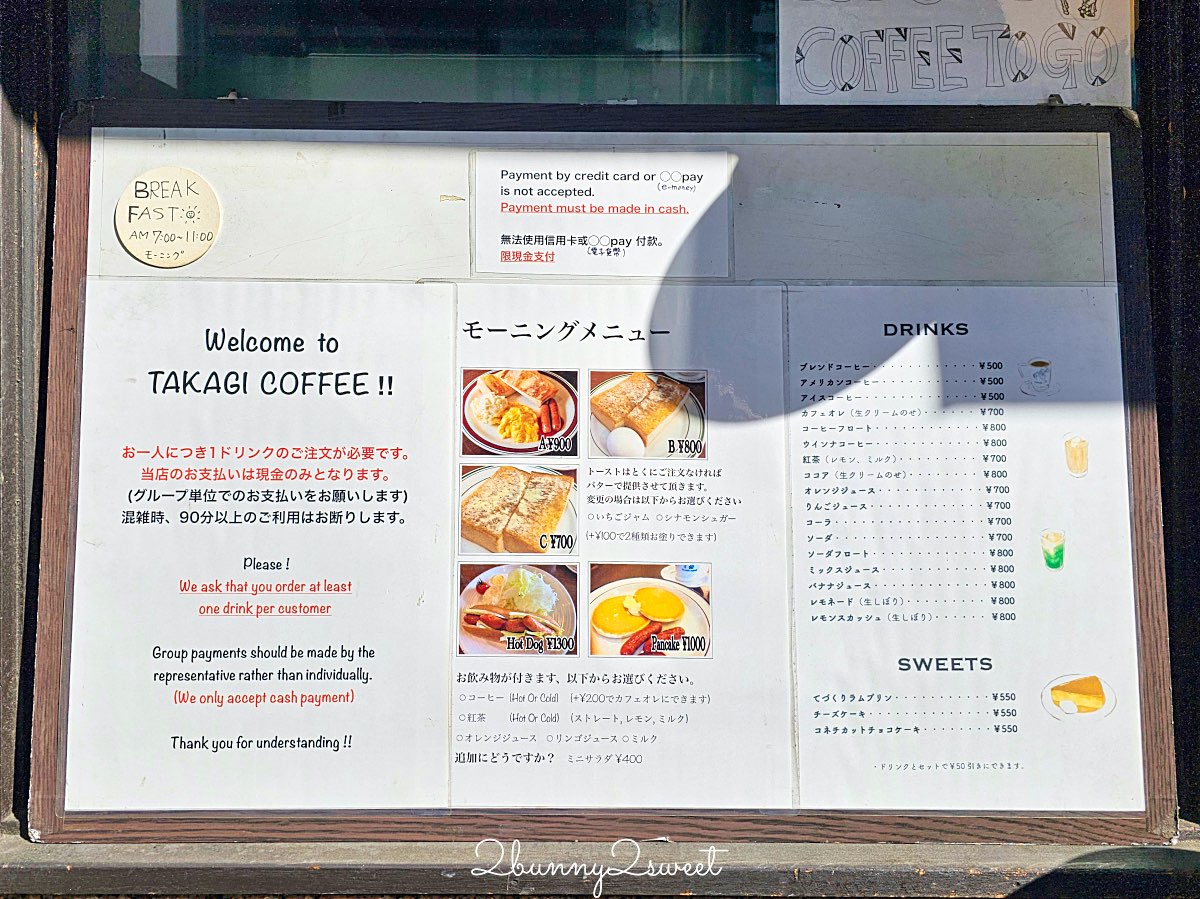 COFFEE TO GO
BREAK
FAST
AM 7:00~11:00
モーニング
Payment by credit card or ○○pay
(e-money)
is not accepted.
Payment must be made in cash.
無法使用信用卡或○○pay 付款。
(電子貨幣)
限現金支付
Welcome to
TAKAGI COFFEE !!
お一人につき1ドリンクのご注文が必要です。
当店のお支払いは現金のみとなります。
(グループ単位でのお支払いをお願いします)
混雑時、90分以上のご利用はお断りします。
Please !
We ask that you order at least
one drink per customer
Group payments should be made by the
representative rather than individually.
(We only accept cash payment)
Thank you for understanding !!
モーニングメニュー
A ¥900
B ¥800
C ¥700
トーストはとくにご注文なければ
バターで提供させて頂きます。
変更の場合は以下からお選びください
○いちごジャム ○シナモンシュガー
(+¥100で2種類お塗りできます)
Hot Dog ¥1300
Pancake ¥1000
お飲み物が付きます、以下からお選びください。
○コーヒー (Hot Or Cold) (+¥200でカフェオレにできます)
○紅茶 (Hot Or Cold) (ストレート, レモン, ミルク)
○オレンジジュース ○リンゴジュース ○ミルク
追加にどうですか? ミニサラダ ¥400
DRINKS
ブレンドコーヒー・・・・・・・・・・・・・¥500
アメリカンコーヒー・・・・・・・・・・・・¥500
アイスコーヒー・・・・・・・・・・・・・・¥500
カフェオレ（生クリームのせ）・・・・・・・¥700
コーヒーフロート・・・・・・・・・・・・・¥800
ウインナコーヒー・・・・・・・・・・・・・¥800
紅茶（レモン、ミルク）・・・・・・・・・・¥700
ココア（生クリームのせ）・・・・・・・・・¥800
オレンジジュース・・・・・・・・・・・・・¥700
りんごジュース・・・・・・・・・・・・・・¥700
コーラ・・・・・・・・・・・・・・・・・・¥700
ソーダ・・・・・・・・・・・・・・・・・・¥700
ソーダフロート・・・・・・・・・・・・・・¥800
ミックスジュース・・・・・・・・・・・・・¥800
バナナジュース・・・・・・・・・・・・・・¥800
レモネード（生しぼり）・・・・・・・・・・¥800
レモンスカッシュ（生しぼり）・・・・・・・¥800
SWEETS
てづくりラムプリン・・・・・・・・・・・・¥550
チーズケーキ・・・・・・・・・・・・・・・¥550
コネチカットチョコケーキ・・・・・・・・・¥550
・ドリンクとセットで¥50引きにできます。
2bunny2sweet